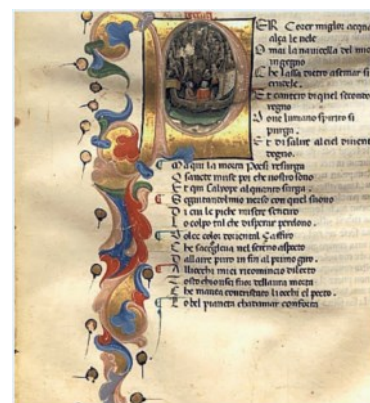 ER Correr miglor acqua
alça le uele
O mai la nauicella del mio
ingegno
C he lassa dietro a se mar si
crudele.
E t cantero di quel secondo
regno
D oue lumano spirito si
purga.
E t di salire al ciel diuenta
degno.
M a qui la morta Poesi resurga
O sancte muse poi che uostro sono
E t qui Caliope alquanto surga.
S eguitando lmio con quel suono
D i cui le piche misere sentiro
L o colpo tal che disperar perdono.
D olce color doriental
C he saccoglieua nel sereno aspecto
D allaire puro infin al primo giro.
A lli occhi miei ricomincio dilecto
T osto chio usci fuor dellaura morta
C he mauea contristati li occhi el pecto.
L o bel pianeta chadamar conforta